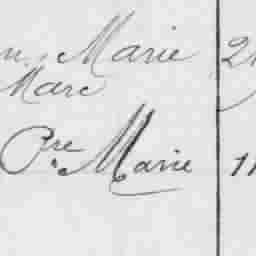 Marie 2
Marc
Pre Marie 11